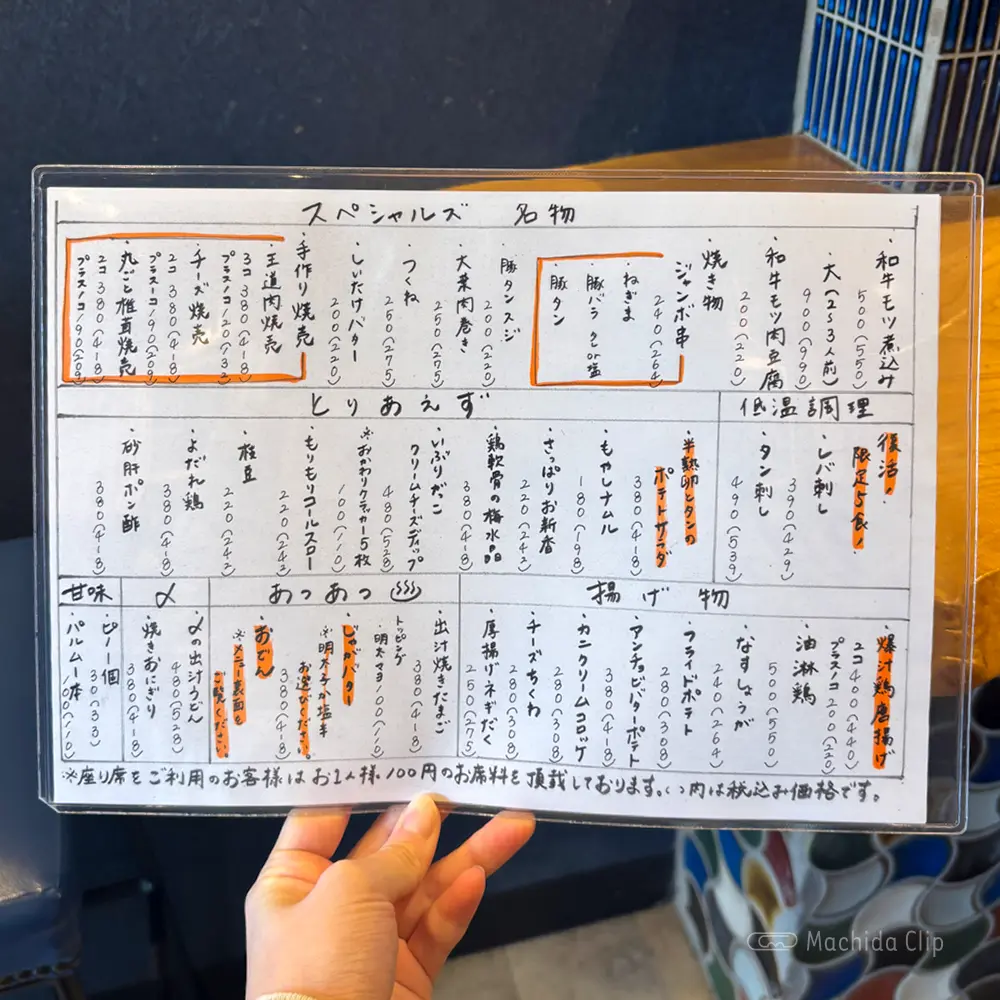 スペシャルズ 名物
・和牛モツ煮込み
500(550)
・大(2〜3人前)
900(990)
・和牛モツ肉豆腐
200(220)
焼き物
ジャンボ串
240(264)
・ねぎま
・豚バラ タレor塩
・豚タン
・豚タンスジ
200(220)
・大葉肉巻き
250(275)
・つくね
250(275)
・しいたけバター
200(220)
手作り焼売
・王道肉焼売
3コ 380(418)
プラス1コ 120(132)
・チーズ焼売
2コ 380(418)
プラス1コ 190(209)
・丸ごと椎茸焼売
2コ 380(418)
プラス1コ 190(209)
低温調理
復活!
限定5食!
・レバ刺し
390(429)
・タン刺し
490(539)
とりあえず
・半熟卵とタンの
ポテトサラダ
380(418)
・もやしナムル
180(198)
・さっぱりお新香
220(242)
・鶏軟骨の梅水晶
380(418)
・いぶりがっこ
クリームチーズディップ
480(528)
※おかわりクラッカー5枚
100(110)
・もりもりコールスロー
220(242)
・枝豆
220(242)
・よだれ鶏
380(418)
・砂肝ポン酢
380(418)
揚げ物
・爆汁鶏唐揚げ
2コ 400(440)
プラス1コ 200(220)
・油淋鶏
500(550)
・なすしょうが
240(264)
・フライドポテト
280(308)
・アンチョビバターポテト
380(418)
・カニクリームコロッケ
280(308)
・チーズちくわ
280(308)
・厚揚げネギだく
250(275)
あつあつ
・出汁焼きたまご
380(418)
トッピング
明太マヨ 100(110)
・じゃがバター
※明太子か塩辛
お選びください。
380(418)
・おでん
※メニュー裏面を
ご覧ください。
〆
・〆の出汁うどん
480(528)
・焼きおにぎり
380(418)
甘味
・ピノ一個
30(33)
・パルム一本
100(110)
※座り席をご利用のお客様はお1人様100円のお席料を頂戴しております。()内は税込み価格です。
Machida Clip